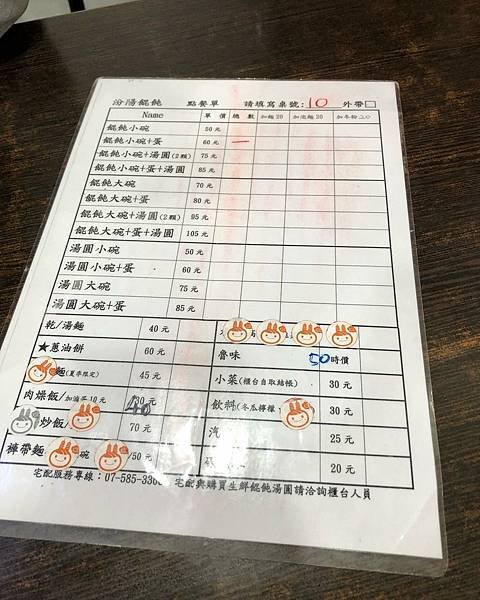 汾陽餛飩 點餐單 請填寫桌號:10 外帶□
Name 單價 總數 加麵20 加泡麵20 加冬粉20
餛飩小碗 50元
餛飩小碗+蛋 60元 一
餛飩小碗+湯圓(2顆) 75元
餛飩小碗+蛋+湯圓 85元
餛飩大碗 70元
餛飩大碗+蛋 80元
餛飩大碗+湯圓(2顆) 95元
餛飩大碗+蛋+湯圓 105元
湯圓小碗 50元
湯圓小碗+蛋 60元
湯圓大碗 75元
湯圓大碗+蛋 85元
乾/湯麵 40元
★蔥油餅 60元 魯味 50時價
麵(夏季限定) 45元 小菜(櫃台自取結帳) 30元
肉燥飯/加滷蛋10元 40 /30元 飲料(冬瓜檸檬 30元
炒飯/ 70元 汽 25元
褲帶麵 碗 /50元 20元
宅配服務專線:07-585-33 宅配與購買生鮮餛飩湯圓請洽詢櫃台人員